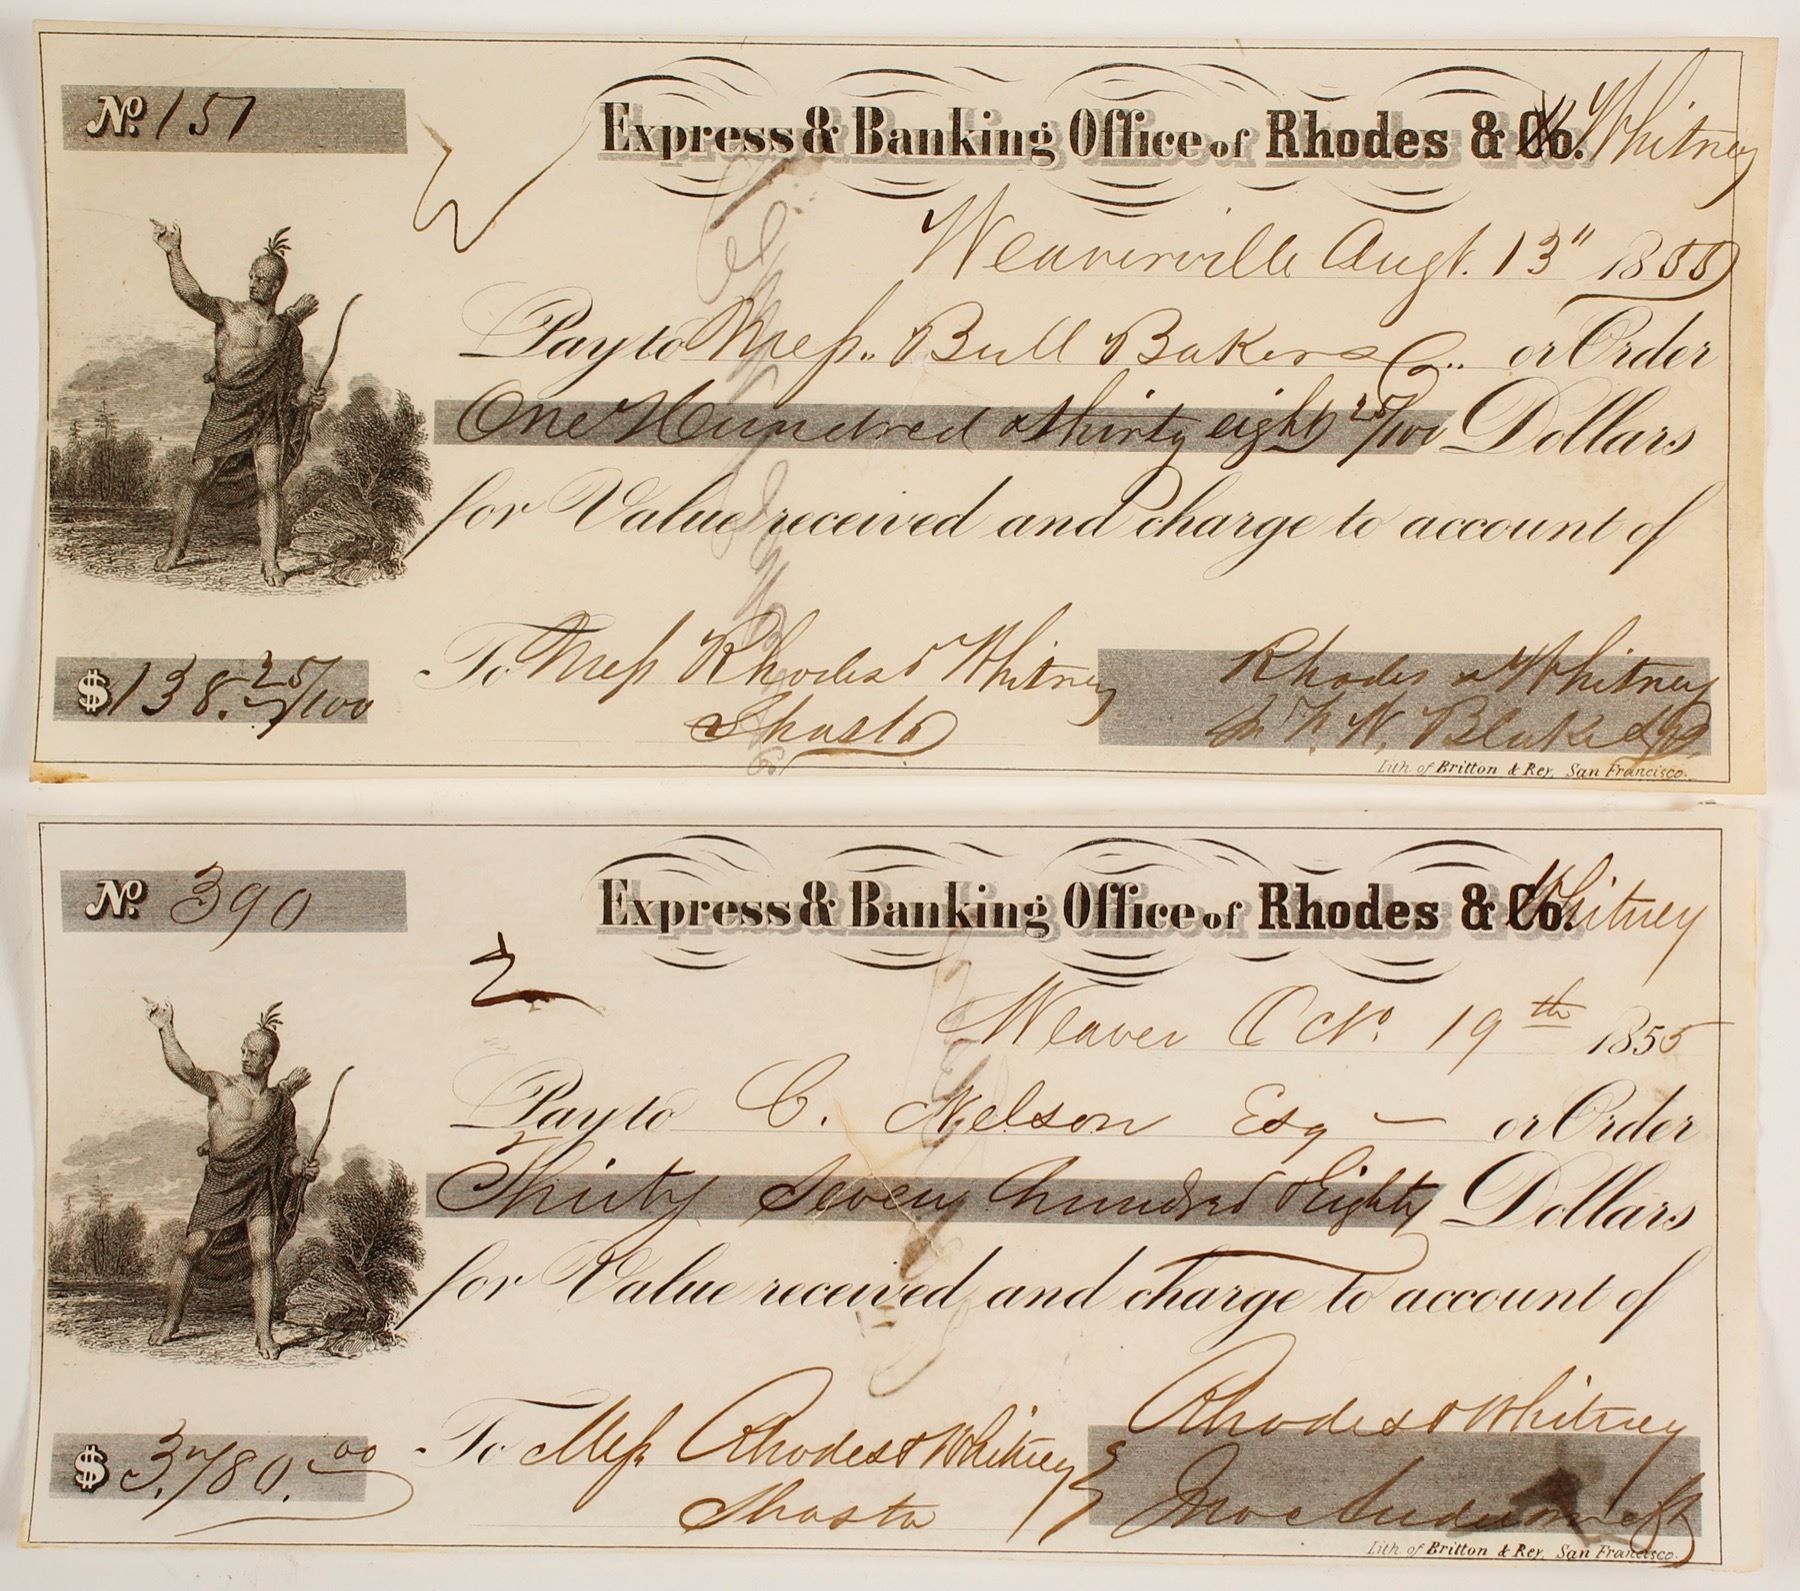 No. 151
Express & Banking Office of Rhodes & Co. Whitney
Weaverville Augt. 13" 1855
Pay to Mess.. Bull Bakers Co.. or Order
One Hundred & thirty eight 25/100 Dollars
for Value received and charge to account of
$ 138. 25/100
To Mess Rhodes & Whitney
Shasta
Rhodes & Whitney
W. Blake
Lith. of Britton & Rey, San Francisco.
No. 390
Express & Banking Office of Rhodes & Co. Whitney
Weaver Oct. 19th 1855
Pay to C. Nelson Esq — or Order
Thirty Seven hundred & Eighty Dollars
for Value received and charge to account of
$ 3.780.00
To Mess. Rhodes & Whitney
Shasta
Rhodes & Whitney
Lith. of Britton & Rey, San Francisco.